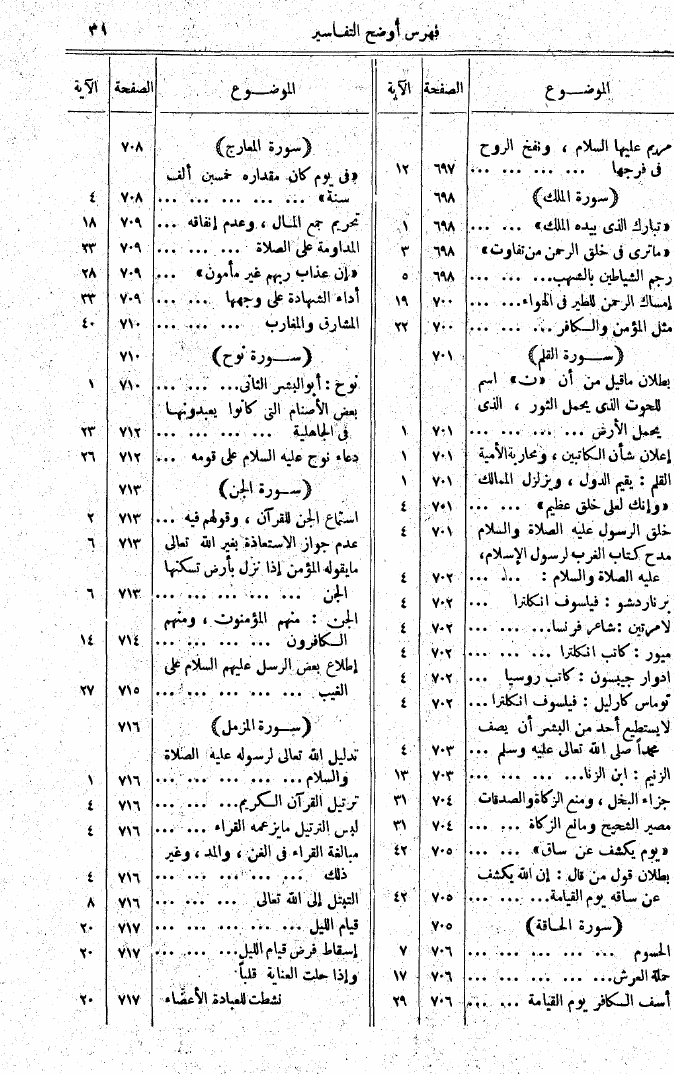 فهرس أوضح التفاسير ٣٩
الموضوع الصفحة الآية
مريم عليها السلام ، ونفخ الروح
فى فرجها ... ... ... ... ٦٩٧ ١٢
(سورة الملك) ٦٩٨
«تبارك الذى بيده الملك» ... ... ٦٩٨ ١
«ماترى فى خلق الرحمن من تفاوت» ٦٩٨ ٣
رجم الشياطين بالشهب... ... ... ٦٩٨ ٥
إمساك الرحمن للطير فى الهواء... ... ٧٠٠ ١٩
مثل المؤمن والكافر ... ... ... ٧٠٠ ٢٢
(سورة القلم) ٧٠١
بطلان ماقيل من أن «ن» اسم
للحوت الذى يحمل الثور ، الذى
يحمل الأرض ... ... ... ... ٧٠١ ١
إعلان شأن الكاتبين ، ومحاربة الأمية ٧٠١ ١
القلم : يقيم الدول ، ويزلزل الممالك ٧٠١ ١
«وإنك لعلى خلق عظيم» ... ... ٧٠١ ٤
خلق الرسول عليه الصلاة والسلام ٧٠١ ٤
مدح كتاب الغرب لرسول الإسلام،
عليه الصلاة والسلام : ... ... ٧٠٢ ٤
برناردشو : فيلسوف انكلترا ... ٧٠٢ ٤
لامرتين : شاعر فرنسا... ... ... ٧٠٢ ٤
ميور : كاتب انكلترا ... ... ... ٧٠٢ ٤
ادوار جيبسون : كاتب روسيا ... ٧٠٢ ٤
توماس كارليل : فيلسوف انكلترا... ٧٠٢ ٤
لايستطيع أحد من البشر أن يصف
محمداً صلى الله تعالى عليه وسلم ... ٧٠٣ ٤
الزنيم : ابن الزنا... ... ... ... ٧٠٣ ١٣
جزاء البخل ، ومنع الزكاة والصدقات ٧٠٤ ٣١
مصير الشحيح ومانع الزكاة ... ... ٧٠٤ ٣١
«يوم يكشف عن ساق» ... ... ٧٠٥ ٤٢
بطلان قول من قال : إن الله يكشف
عن ساقه يوم القيامة... ... ... ٧٠٥ ٤٢
(سورة الحاقة) ٧٠٥
الحسوم ... ... ... ... ... ٧٠٦ ٧
حملة العرش... ... ... ... ... ٧٠٦ ١٧
أسف الكافر يوم القيامة ... ... ٧٠٦ ٢٩
الموضوع الصفحة الآية
(سورة المعارج) ٧٠٨
«فى يوم كان مقداره خمسين ألف
سنة» ... ... ... ... ... ٧٠٨ ٤
تحريم جمع المال ، وعدم إنفاقه ... ٧٠٩ ١٨
المداومة على الصلاة ... ... ... ٧٠٩ ٢٣
«إن عذاب ربهم غير مأمون» ... ٧٠٩ ٢٨
أداء الشهادة على وجهها ... ... ٧٠٩ ٣٣
المشارق والمغارب ... ... ... ٧١٠ ٤٠
(سورة نوح) ٧١٠
نوح : أبو البشر الثانى... ... ... ٧١٠ ١
بعض الأصنام التى كانوا يعبدونها
فى الجاهلية ... ... ... ... ٧١٢ ٢٣
دعاء نوح عليه السلام على قومه ... ٧١٢ ٢٦
(سورة الجن) ٧١٣
استماع الجن للقرآن ، وقولهم فيه ... ٧١٣ ٢
عدم جواز الاستعاذة بغير الله تعالى ٧١٣ ٦
مايقوله المؤمن إذا نزل بأرض تسكنها
الجن ... ... ... ... ... ٧١٣ ٦
الجن : منهم المؤمنون ، ومنهم
الكافرون ... ... ... ... ٧١٤ ١٤
إطلاع بعض الرسل عليهم السلام على
الغيب ... ... ... ... ... ٧١٥ ٢٧
(سورة المزمل) ٧١٦
تدليل الله تعالى لرسوله عليه الصلاة
والسلام... ... ... ... ... ٧١٦ ١
ترتيل القرآن الكريم... ... ... ٧١٦ ٤
ليس الترتيل مايزعمه القراء ... ... ٧١٦ ٤
مبالغة القراء فى الغن ، والمد ، وغير
ذلك ... ... ... ... ... ٧١٦ ٤
التبتل إلى الله تعالى ... ... ... ٧١٦ ٨
قيام الليل ... ... ... ... ... ٧١٧ ٢٠
إسقاط فرض قيام الليل... ... ... ٧١٧ ٢٠
وإذا حلت العناية قلباً
نشطت للعبادة الأعضاء ٧١٧ ٢٠